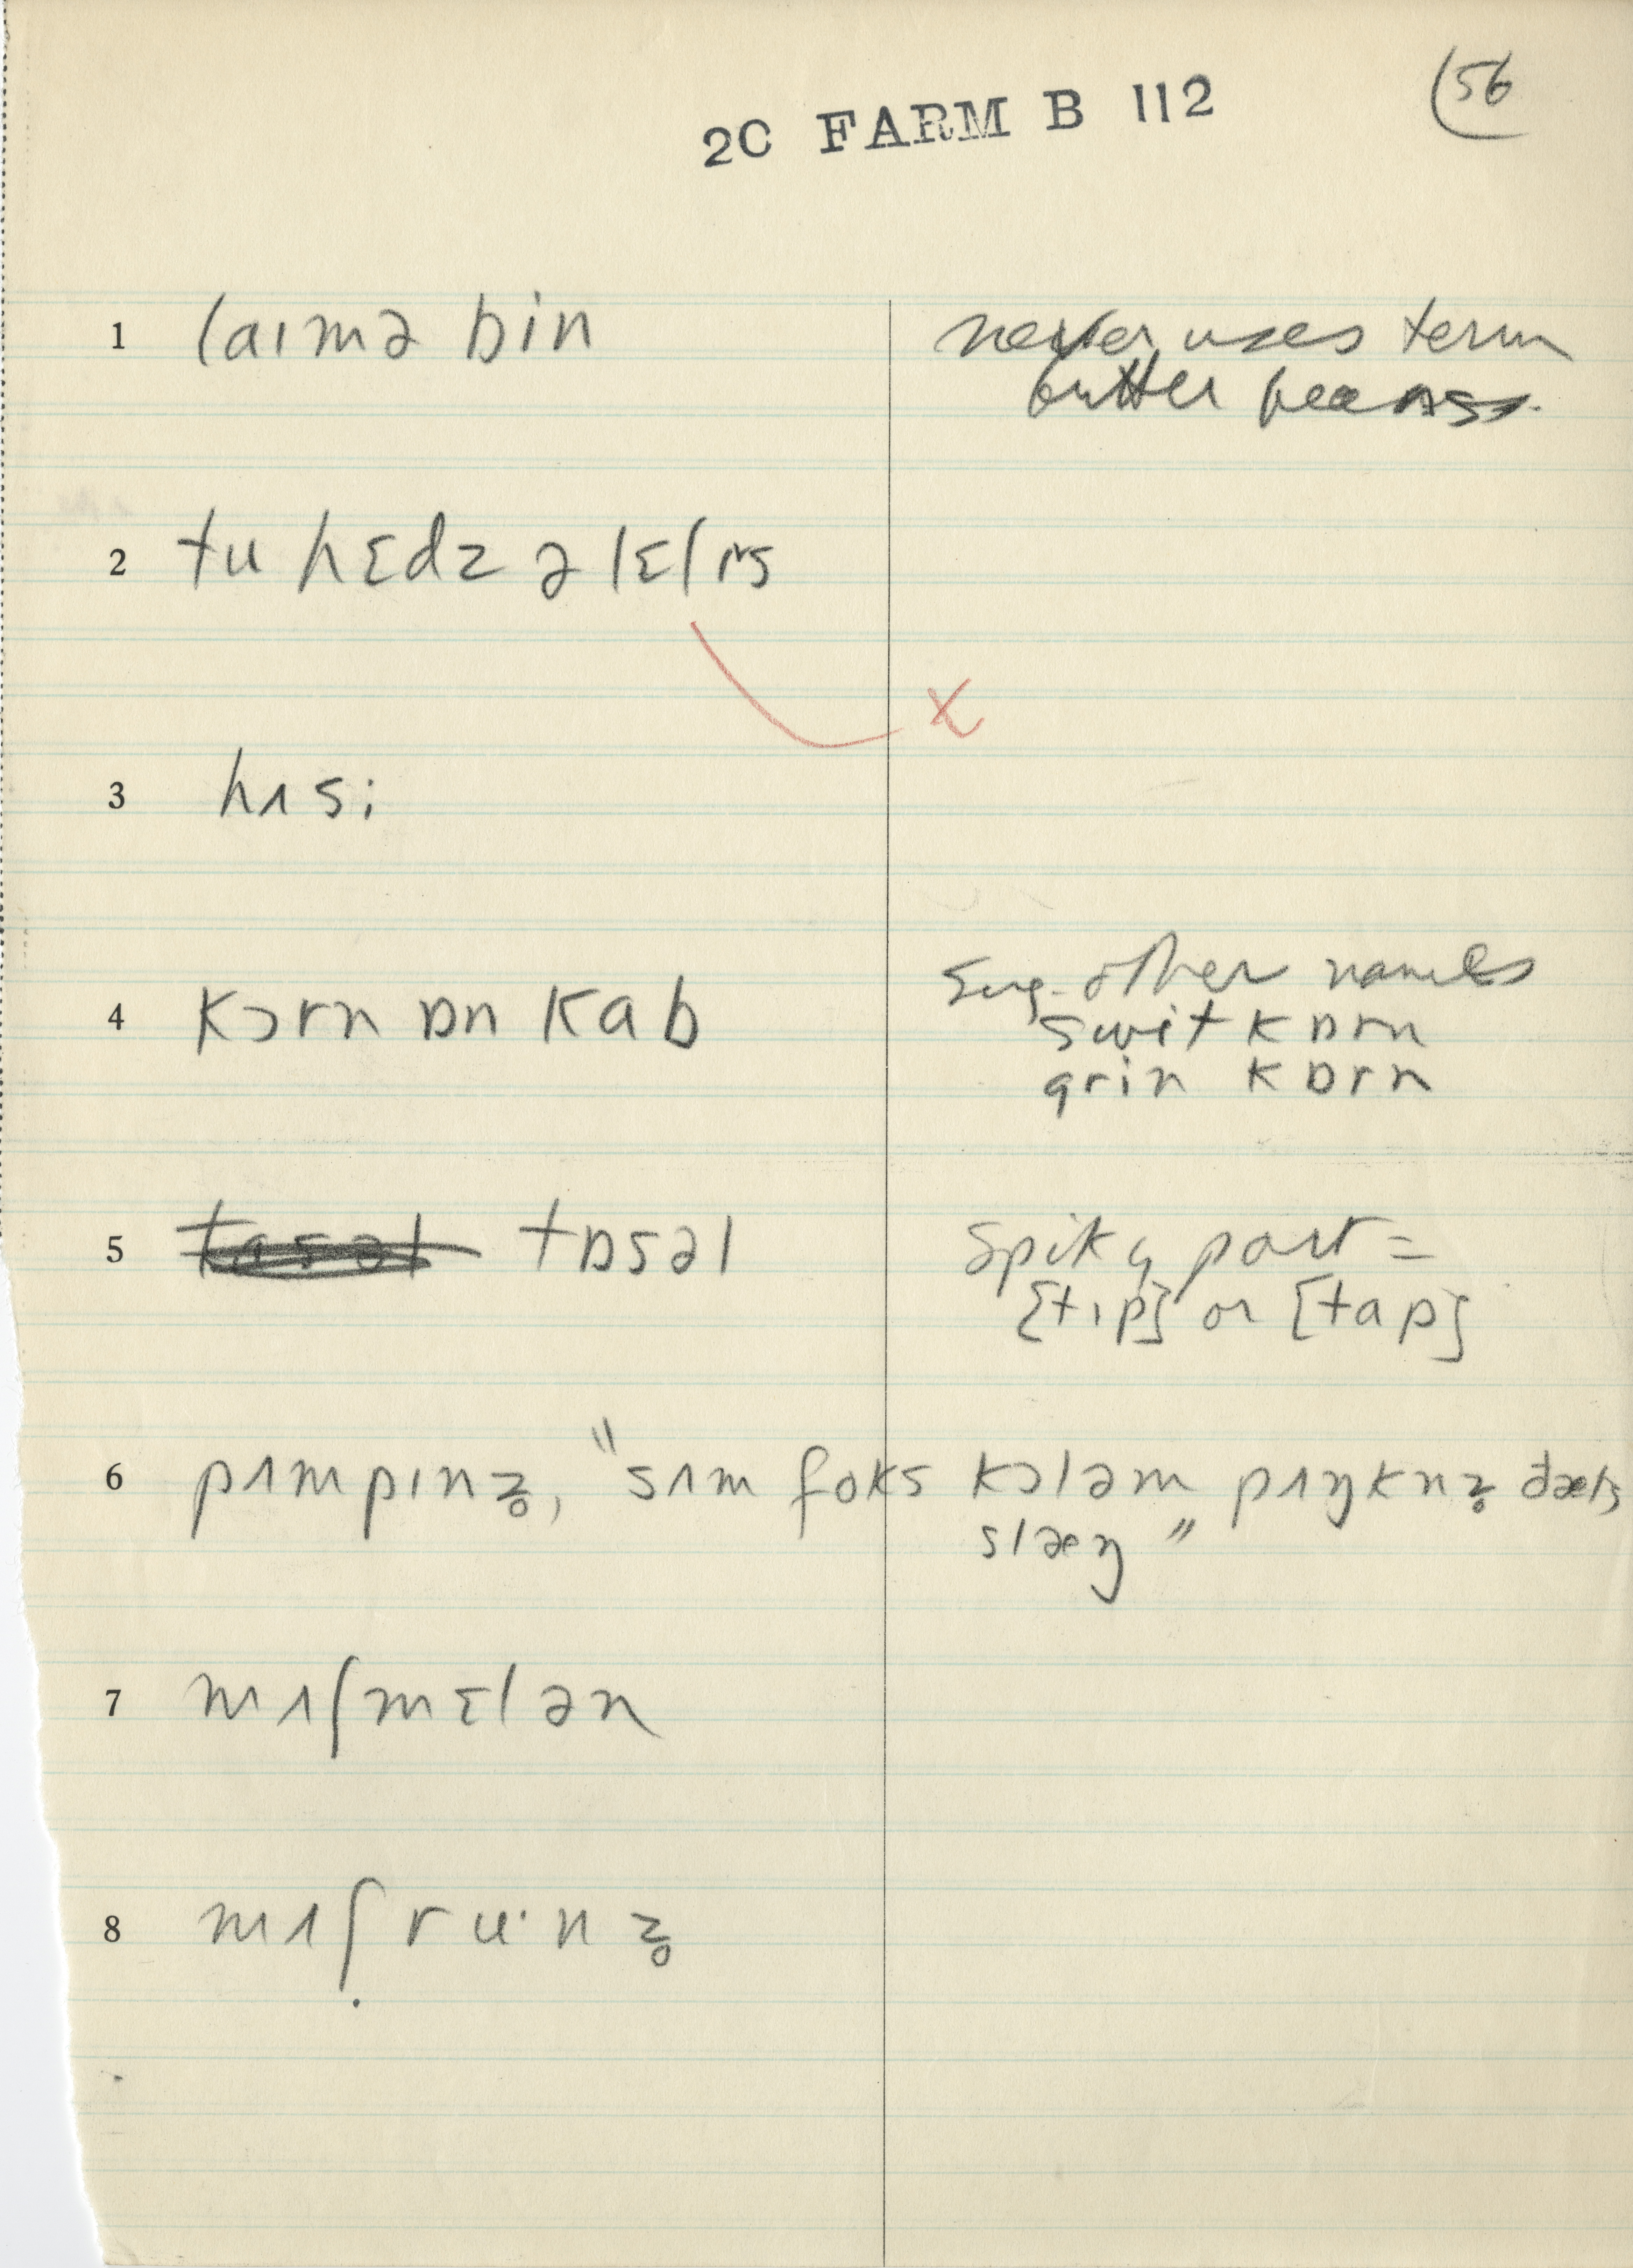 2C FARM B 112
(56
1 laɪmə bin never uses term
butter beans.
2 tu hɛdz ə lɛtɪs
x
3 hʌsi
4 kɔrn ɒn kab Sug. other names
swit kɒrn
grin kɒrn
5 tasəl tɒsəl Spiky part =
[tɪp] or [tap]
6 pʌmpɪnz̥, "sʌm foks kɔləm pʌŋknz̥ ðæts
slæŋ"
7 mʌʃmɛlən
8 mʌʃru·nz̥